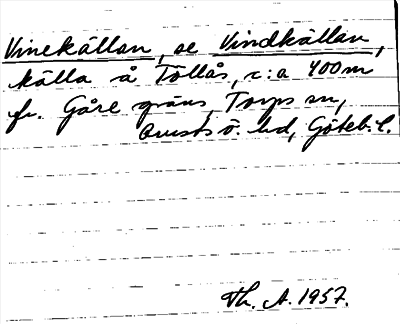 Vinekällan, se Vindkällan,
källa å Töllås, c:a 400 m
fr. Gåre gräns, Torps sn,
Orusts ö. hd, Göteb. l.
Th. A. 1957.